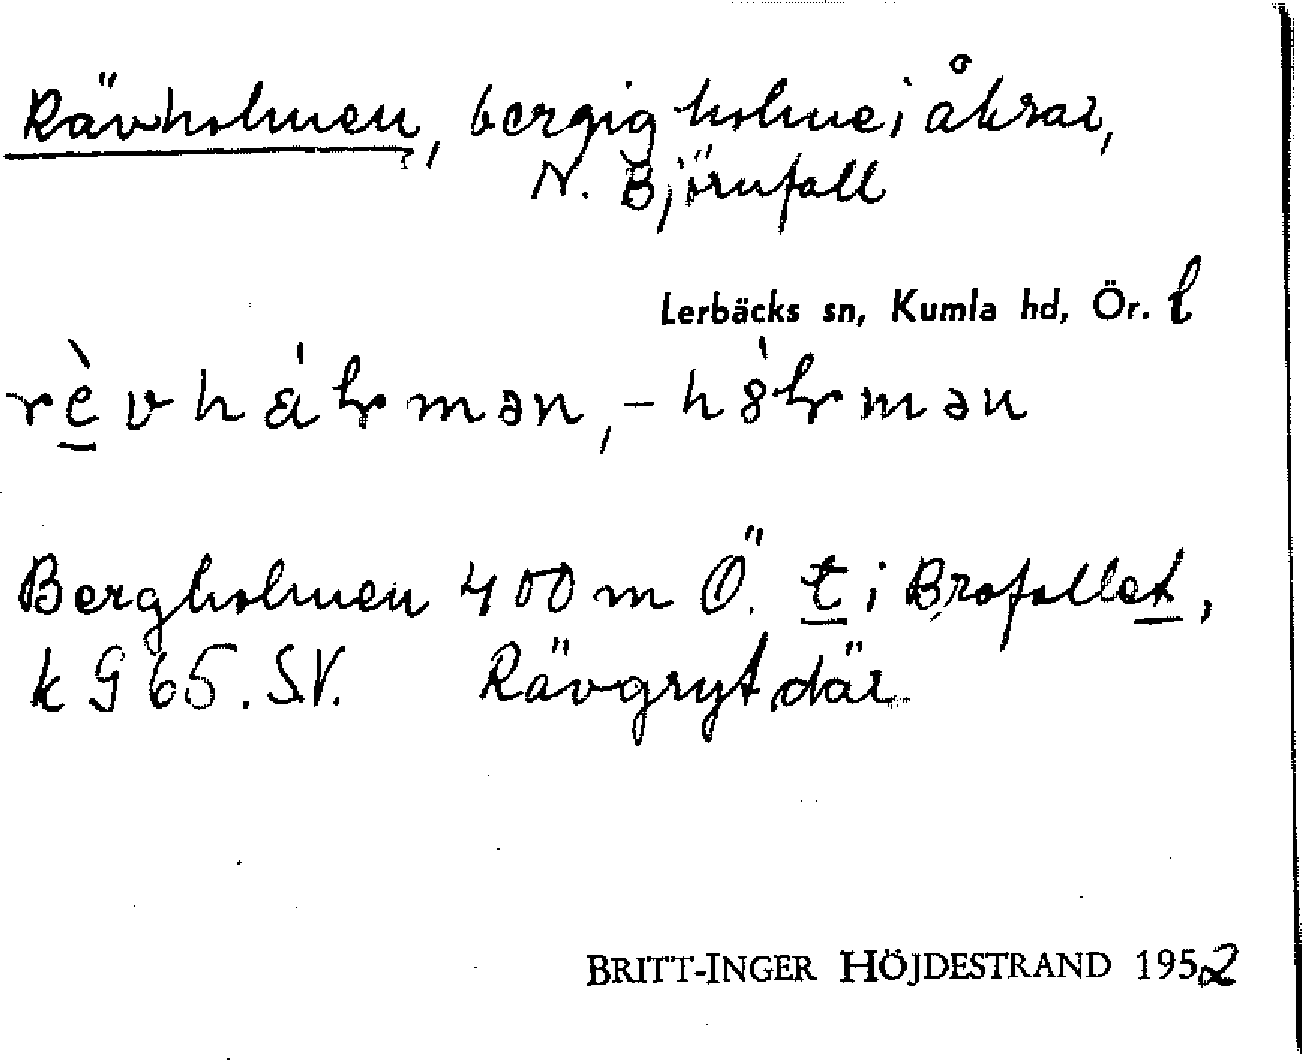 Rävholmen, bergig holme i åkrar,
N. Björnfall
Lerbäcks sn, Kumla hd, Ör. l
rèvhálmən, -hólmən
Bergholmen 400 m Ö. t i Brofallet,
k G 65. S.V. Rävgryt där.
BRITT-INGER HÖJDESTRAND 1952